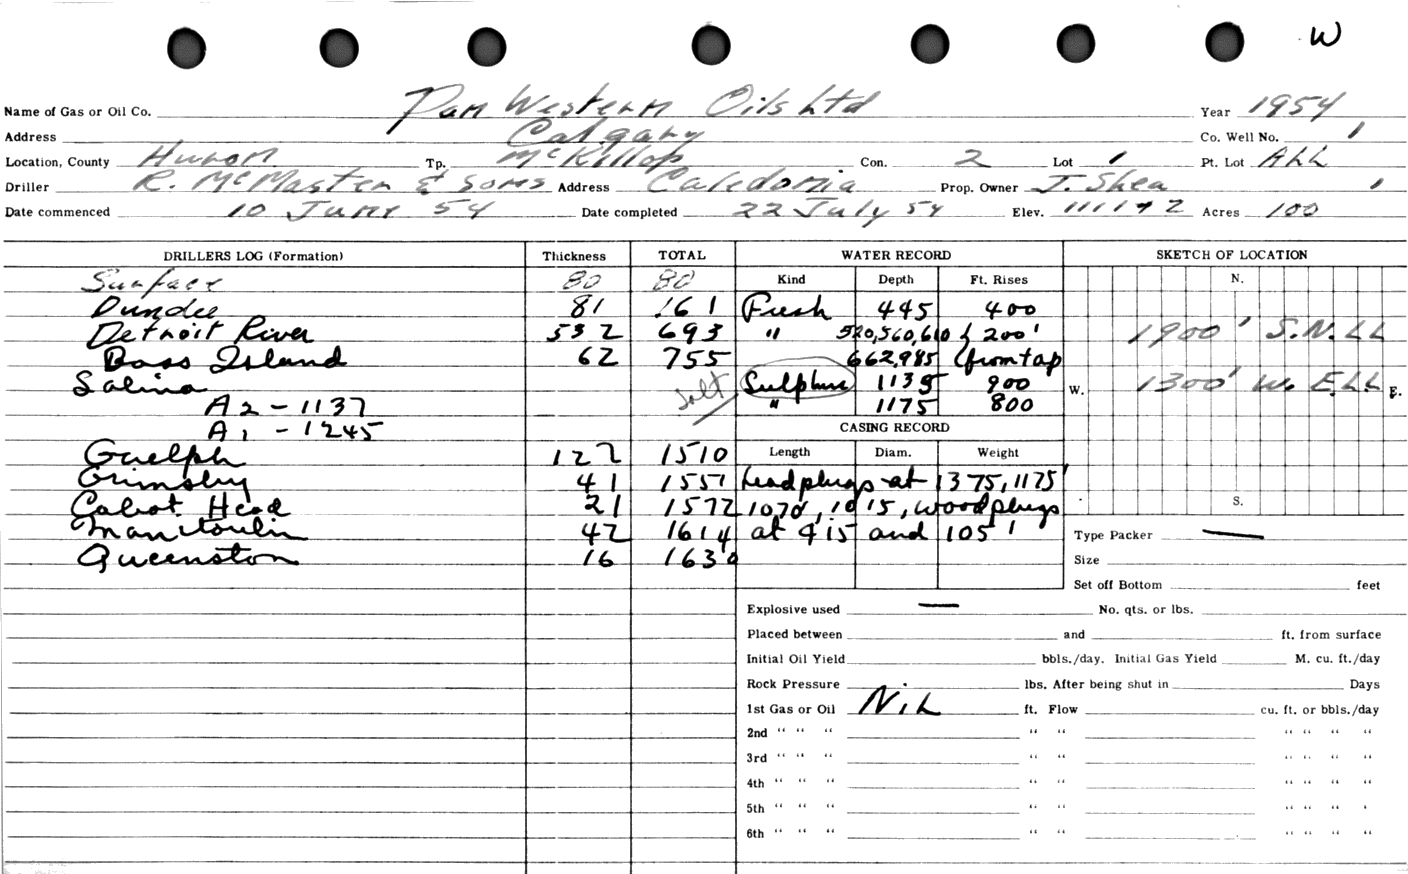 W
Name of Gas or Oil Co. Pan Western Oils Ltd Year 1954
Address Calgary Co. Well No. 1
Location, County Huron Tp. McKillop Con. 2 Lot 1 Pt. Lot ALL
Driller R. McMaster & Sons Address Caledonia Prop. Owner J. Shea
Date commenced 10 June 54 Date completed 22 July 54 Elev. Acres 100
DRILLERS LOG (Formation) Thickness TOTAL WATER RECORD SKETCH OF LOCATION
Surface 80 80 Kind Depth Ft. Rises N.
Dundee 81 161 Fresh 445 400
Detroit River 532 693 " 520,560,610 { 200' 1900' S.N.LL
Bass Island 62 755 662,985 (from top
Salina salt Sulphur 1135 900 W. 1300' W. E.LL E.
A2 - 1137 " 1175 800
A1 - 1245 CASING RECORD
Guelph 122 1510 Length Diam. Weight
Grimsby 41 1551 Lead plugs at 1375, 1175'
Cabot Head 21 1572 1070', 1015, wood plugs S.
Manitoulin 42 1614 at 415 and 105' Type Packer —
Queenston 16 1630 Size
Set off Bottom feet
Explosive used — No. qts. or lbs.
Placed between and ft. from surface
Initial Oil Yield bbls./day. Initial Gas Yield M. cu. ft./day
Rock Pressure lbs. After being shut in Days
1st Gas or Oil Nil ft. Flow cu. ft. or bbls./day
2nd " " " " " " " " "
3rd " " " " " " " " "
4th " " " " " " " " "
5th " " " " " " " " '
6th " " " " " " " " "